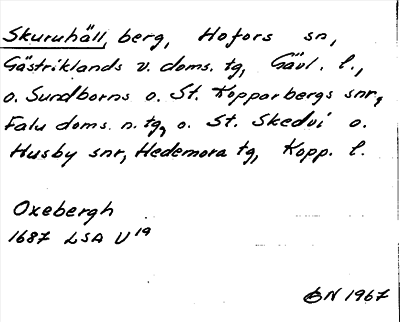 Skuruhäll, berg, Hofors sn,
Gästriklands v. doms. tg, Gävl. l.,
o. Sundborns o. St. Kopparbergs snr,
Falu doms. n. tg, o. St. Skedvi o.
Husby snr, Hedemora tg, Kopp. l.
Oxebergh
1687 LSA U19
ÖN 1967